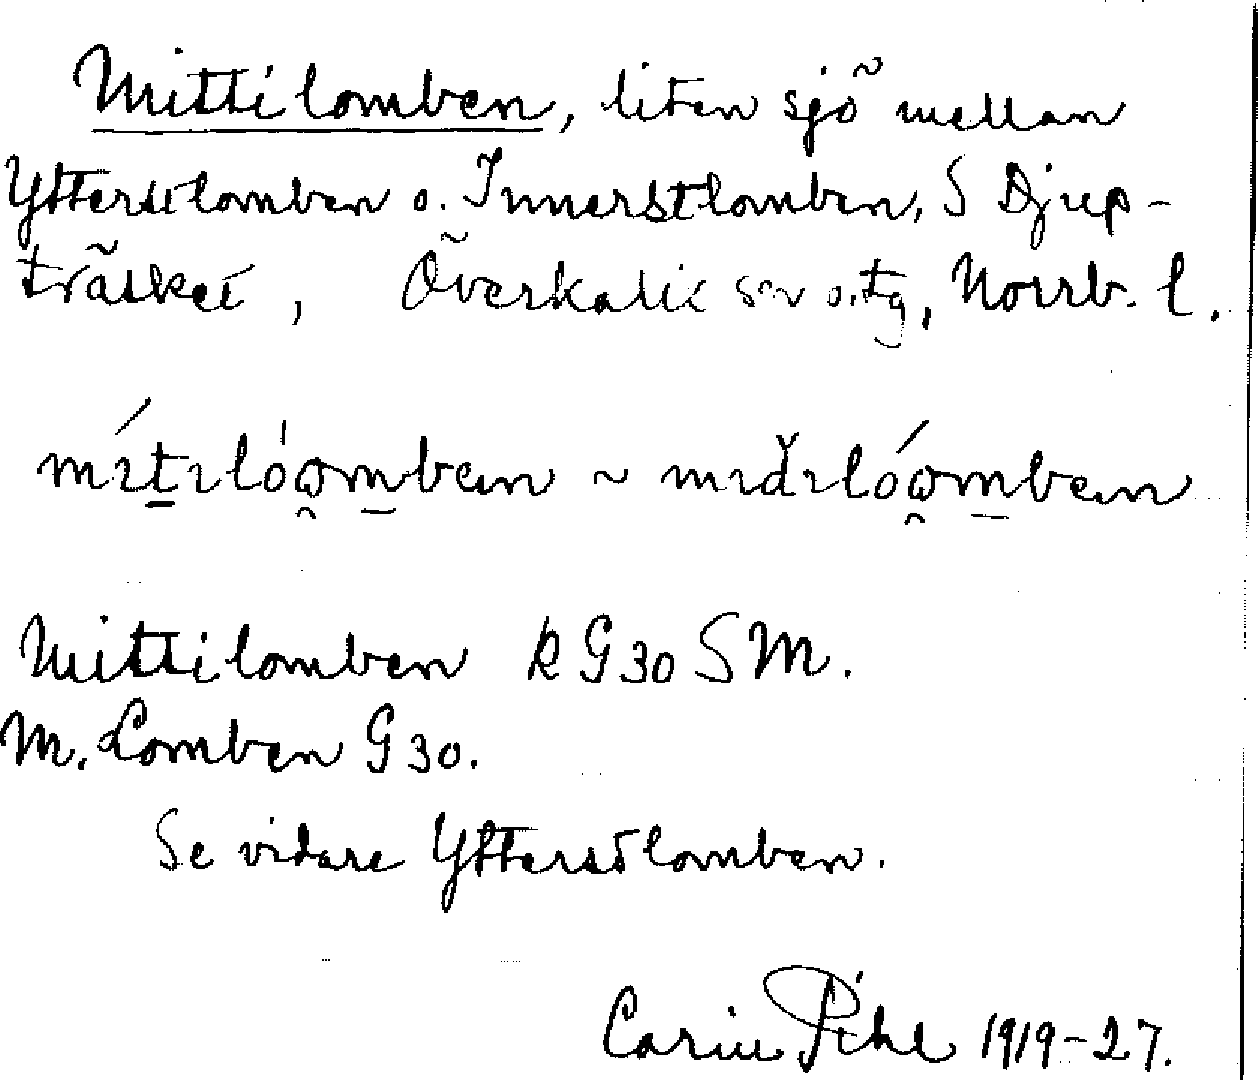 Mittilomben, liten sjö mellan
Ytterstlomben o. Innerstlomben, S Djup-
träsket, Överkalix sn o. tg, Norrb. l.
mítılóo̯mben ~ mıďılóo̯mben
Mittilomben RG30 SM.
M. Lomben G30.
Se vidare Ytterstlomben.
Carin Pihl 1919-27.